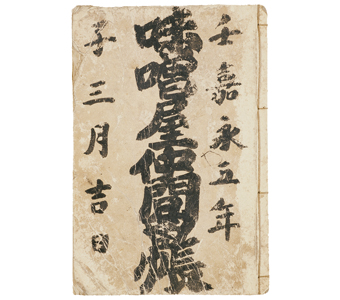 壬嘉永五年
味噌屋仲間帳
子三月吉日